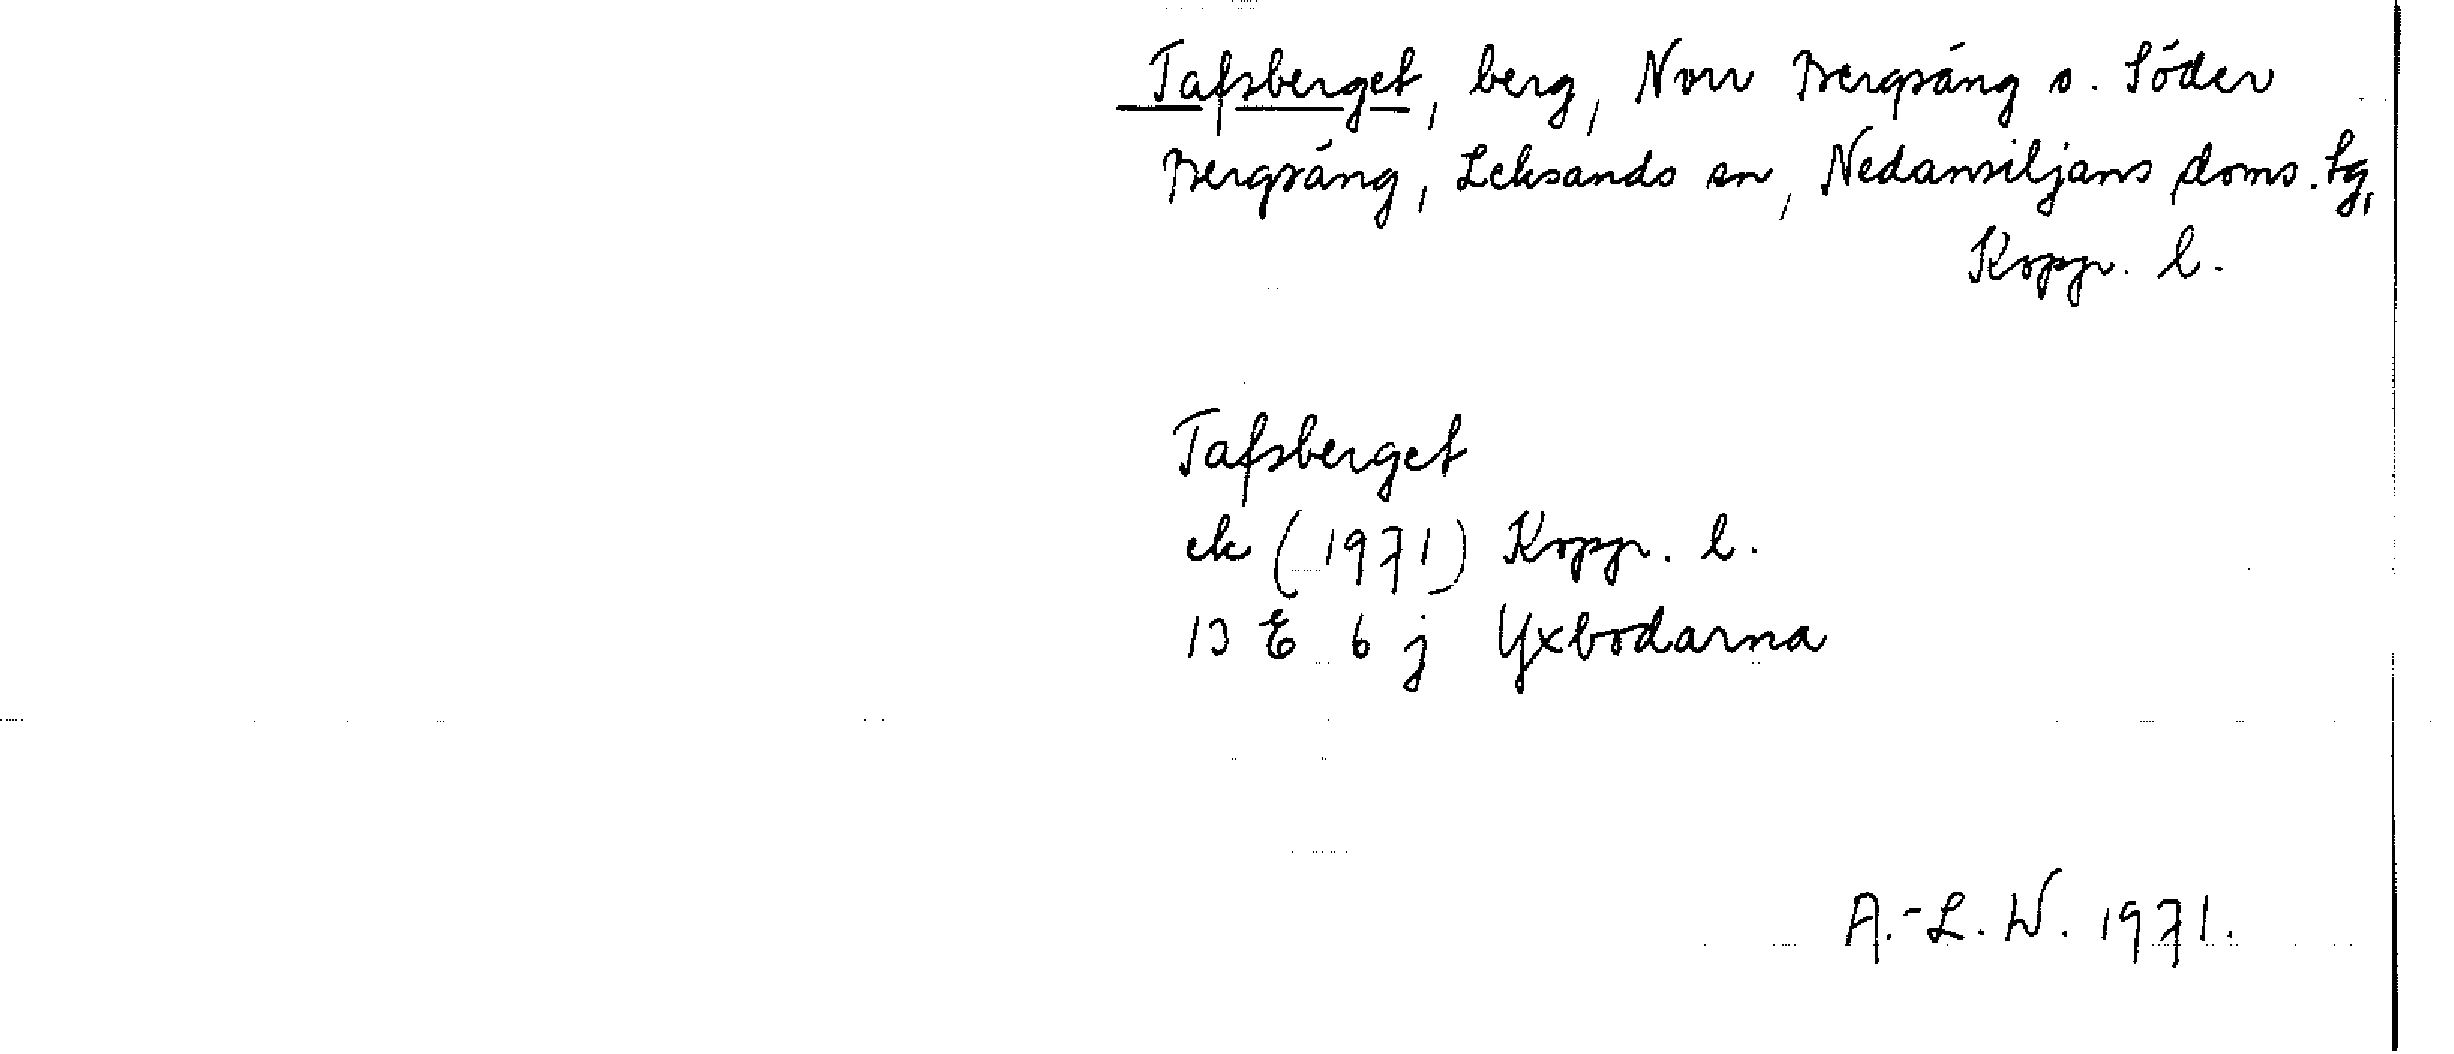 Tafsberget, berg, Norr Bergsäng o. Söder
Bergsäng, Leksands sn, Nedansiljans doms. tg,
Kopp. l.
Tafsberget
ek (1971) Kopp. l.
13 E 6 j Yxbodarna
A.-L. W. 1971.